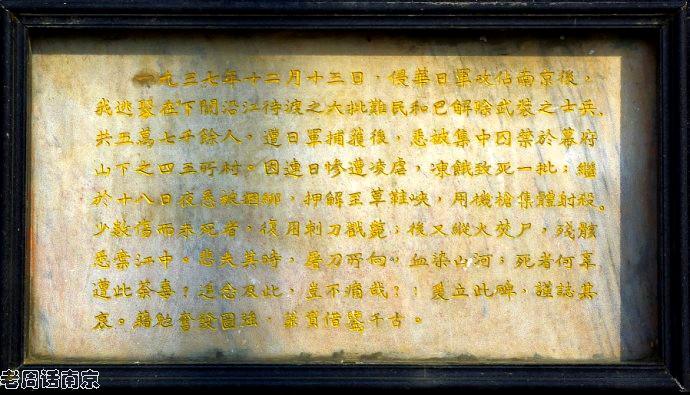 一九三七年十二月十三日，侵華日軍攻佔南京後，
我逃聚在下關沿江待渡之大批難民和已解除武裝之士兵，
共五萬七千餘人，遭日軍捕獲後，悉被集中囚禁於幕府
山下之四五所村。因連日慘遭凌虐，凍餓致死一批；繼
於十八日夜悉被捆綁，押解至草鞋峽，用機槍集體射殺。
少數傷而未死者，復用刺刀戳斃；後又縱火焚尸，殘骸
悉棄江中。悲夫其時，屠刀所向，血染山河；死者何辜
遭此荼毒？追念及此，豈不痛哉？！爰立此碑，謹誌其
哀。藉勉奮發圖強，資借鑒千古。
老周话南京